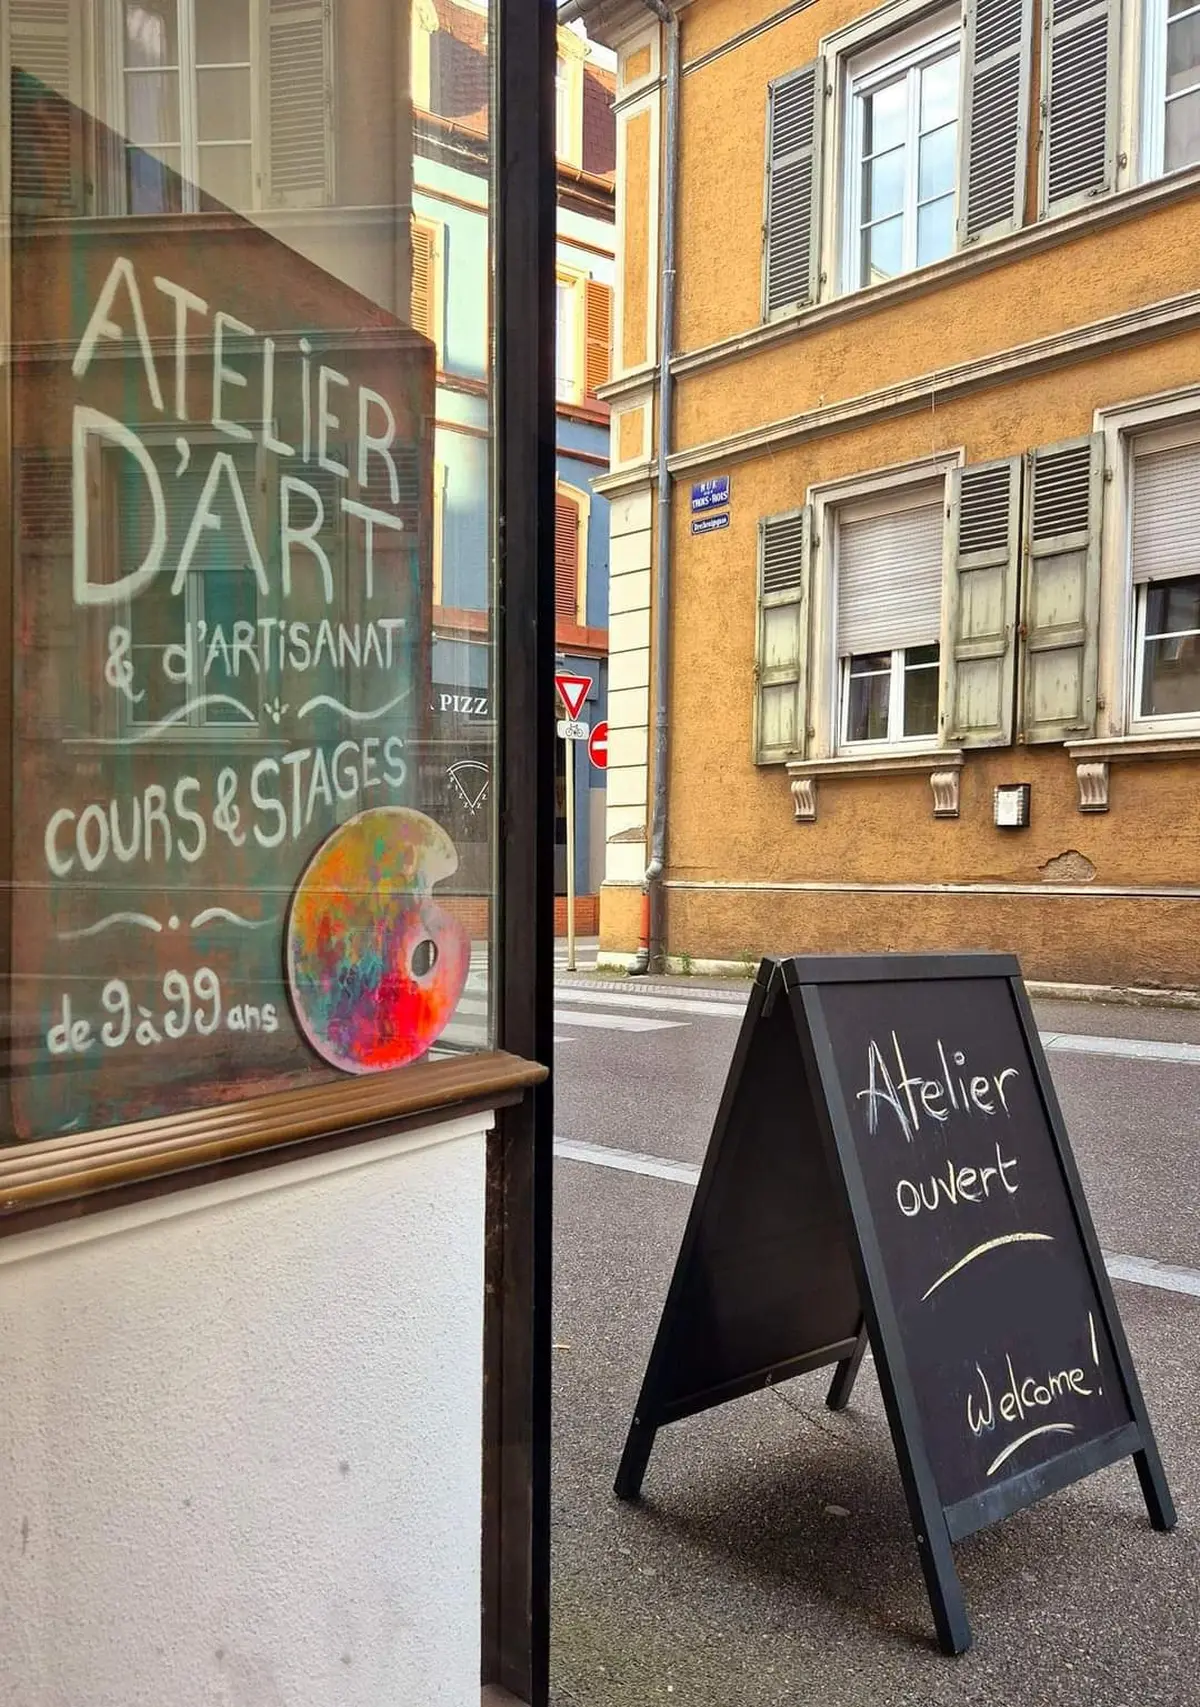 ATELiER
D'ART
& d'ARTiSANAT
COURS & STAGES
de 9 à 99 ans
PIZZ
PIZZA
RUE
DES
TROIS-ROIS
Dreikenigsgass
Atelier
ouvert
Welcome!